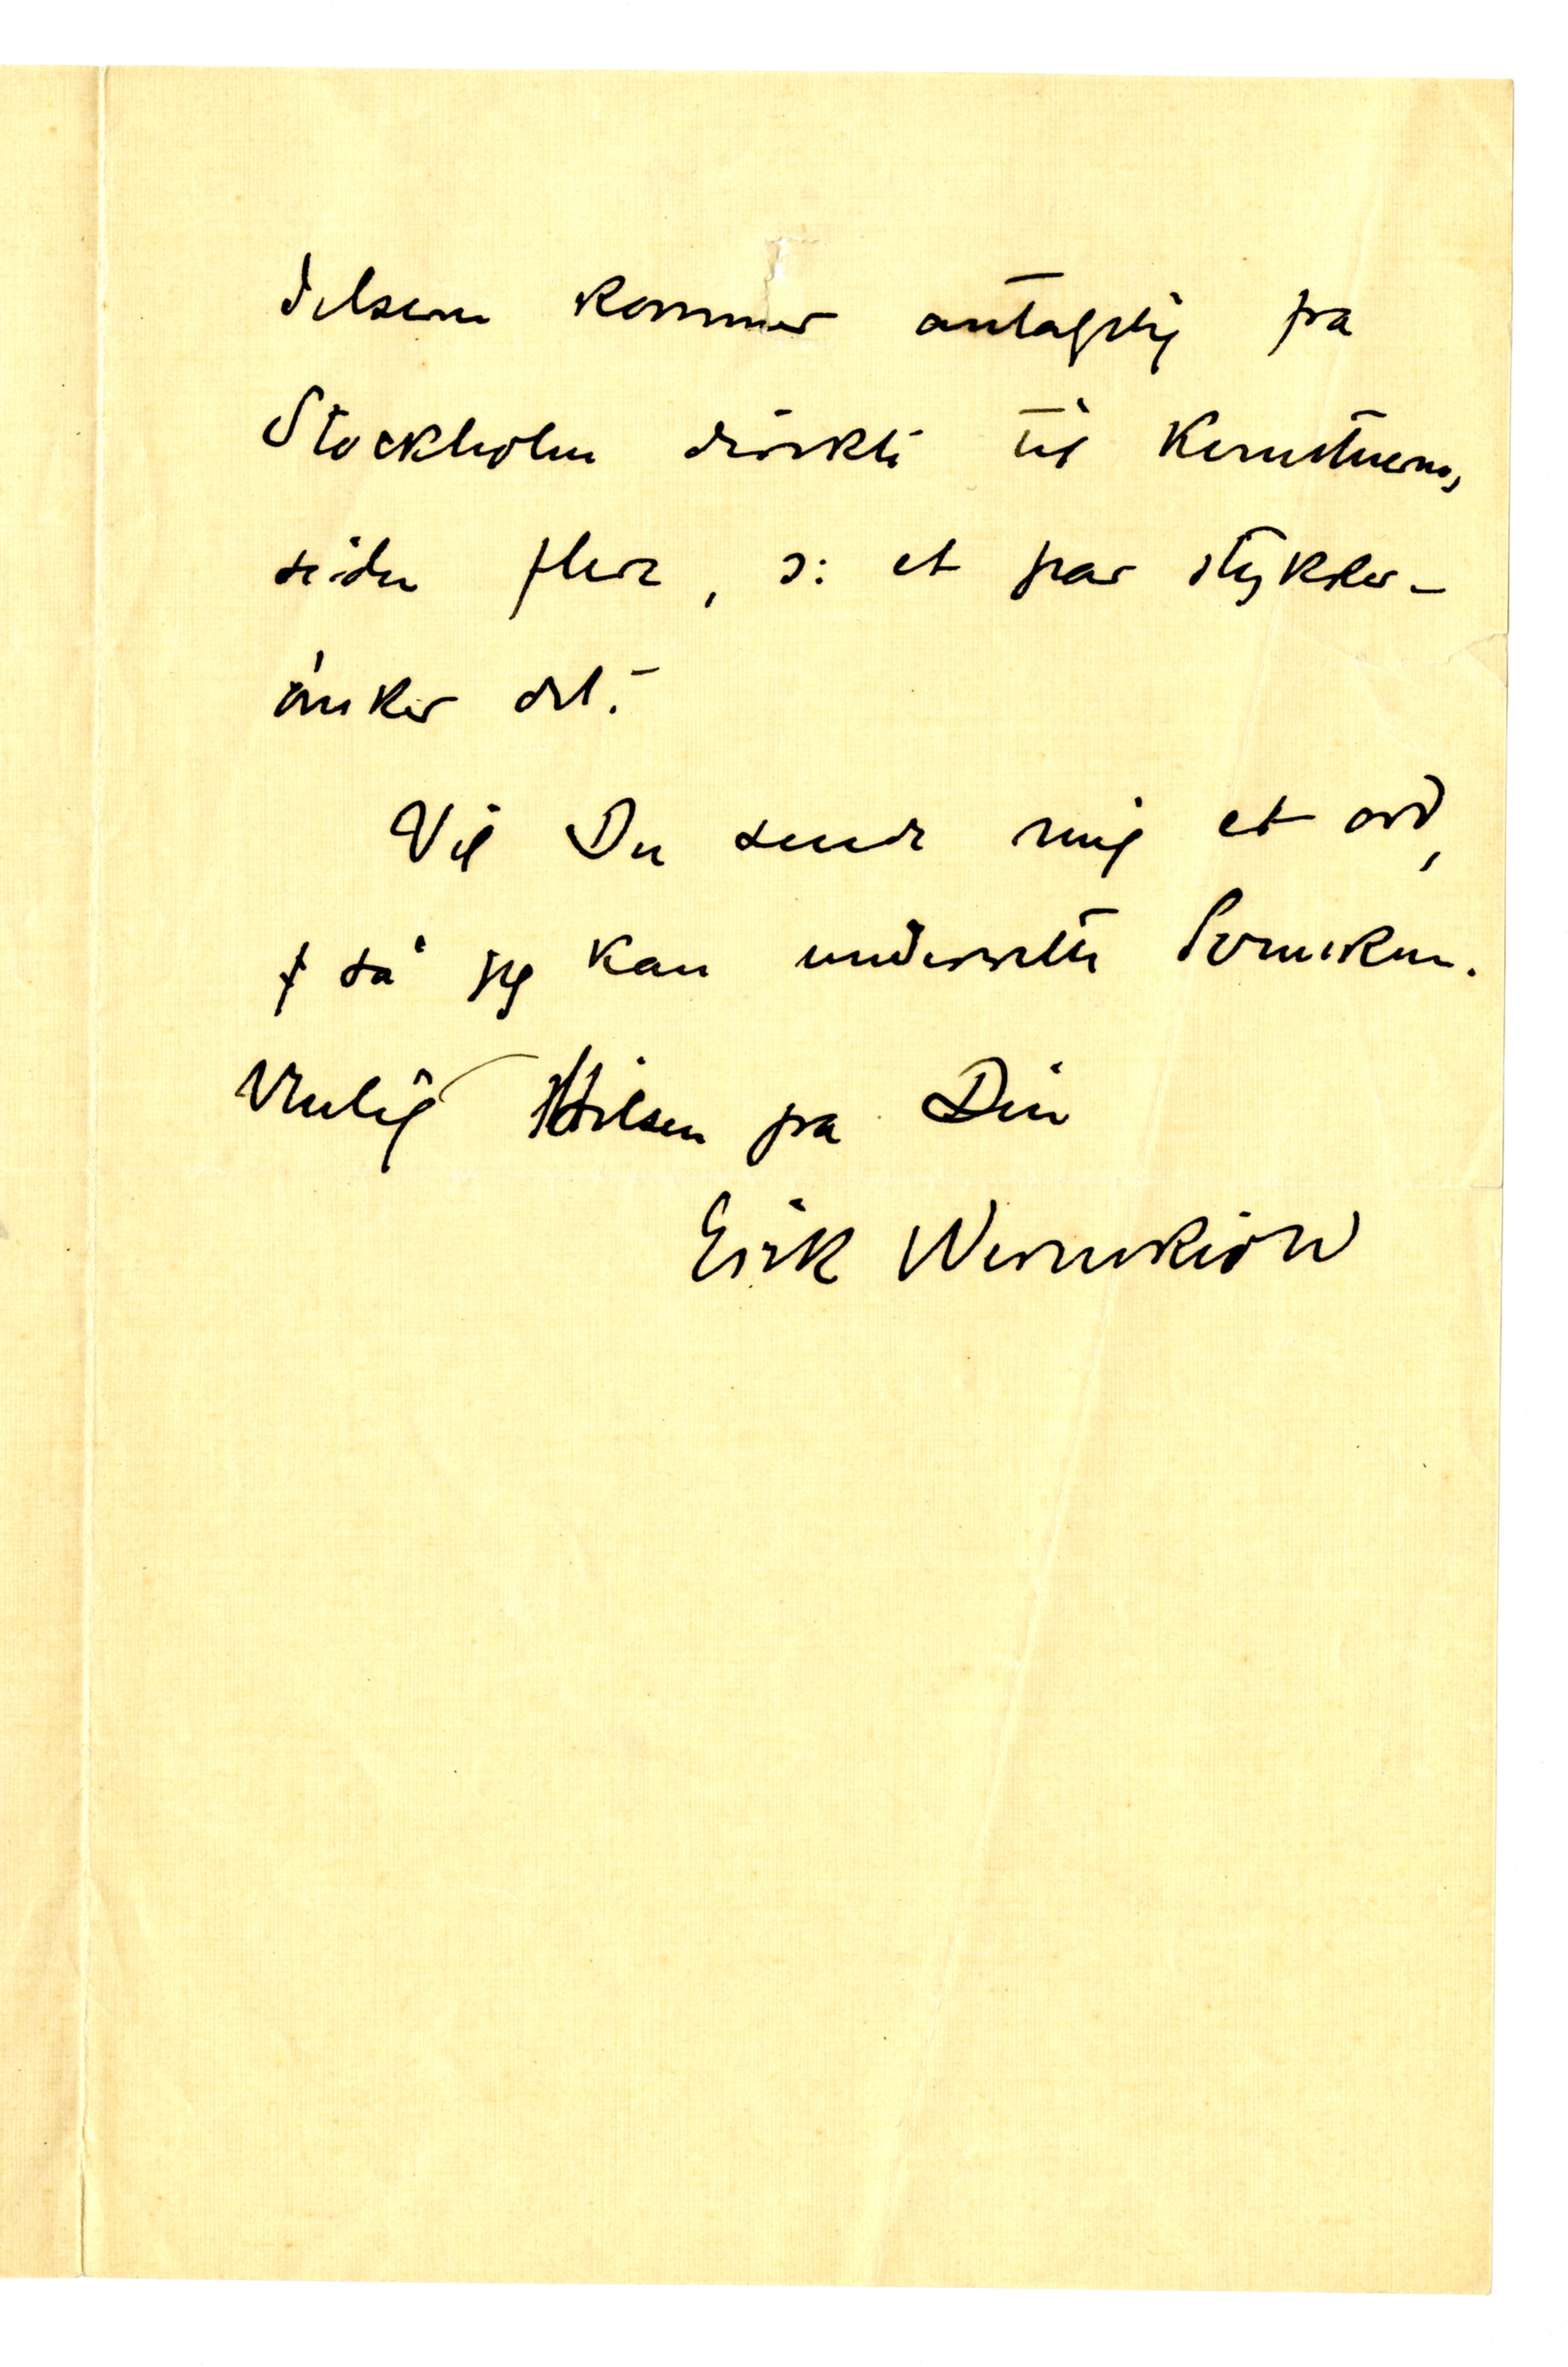 delsern kommer antagelig fra
Stockholm direkte til
siden flere, ɔ: et par stykker –
ønsker det.
Vil Du sende mig et ord,
så jeg kan underrette Svensken.
Venlig Hilsen fra Din
Erik Werenskiold